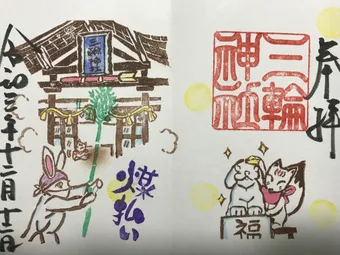 奉拝
三輪
神社
福
三輪神社
煤払い
令和三年十二月十三日